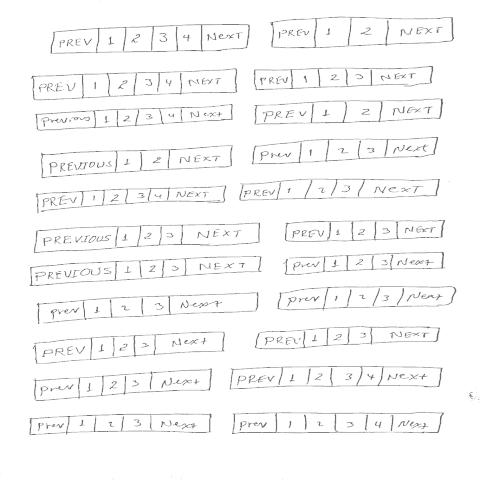 PREV 1 2 3 4 NexT PREV 1 2 NEXT
PREV 1 2 3 4 NEXT PREV 1 2 3 NEXT
Previous 1 2 3 4 Next PREV 1 2 NEXT
PREVIOUS 1 2 NEXT Prev 1 2 3 Next
PREV 1 2 3 4 NEXT PREV 1 2 3 NEXT
PREVIOUS 1 2 3 NEXT PREV 1 2 3 NEXT
PREVIOUS 1 2 3 NEXT Prev 1 2 3 Next
Prev 1 2 3 Next Prev 1 2 3 Next
PREV 1 2 3 Next PREV 1 2 3 NEXT
Prev 1 2 3 Next PREV 1 2 3 4 Next
Prev 1 2 3 Next Prev 1 2 3 4 Next